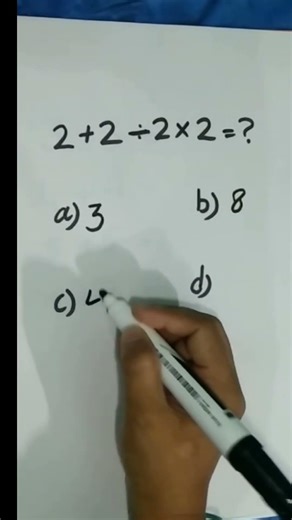 2+2÷2×2=?
a) 3 b) 8
c) 4 d)